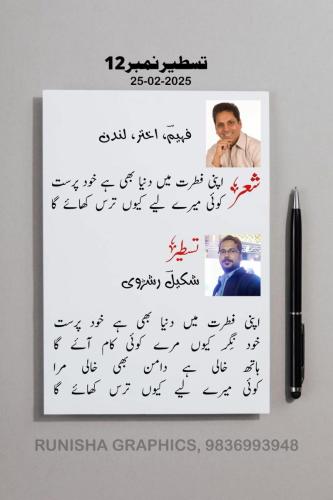 تسطیر نمبر 12
25-02-2025
فہیم، اختر، لندن
شعر
اپنی فطرت میں دنیا بھی ہے خود پرست
کوئی میرے لیے کیوں ترس کھائے گا
تسطیر
شکیل رشڑوی
اپنی فطرت میں دنیا بھی ہے خود پرست
خود نِگر کیوں مرے کوئی کام آئے گا
ہاتھ خالی ہے دامن بھی خالی مرا
کوئی میرے لیے کیوں ترس کھائے گا
RUNISHA GRAPHICS, 9836993948